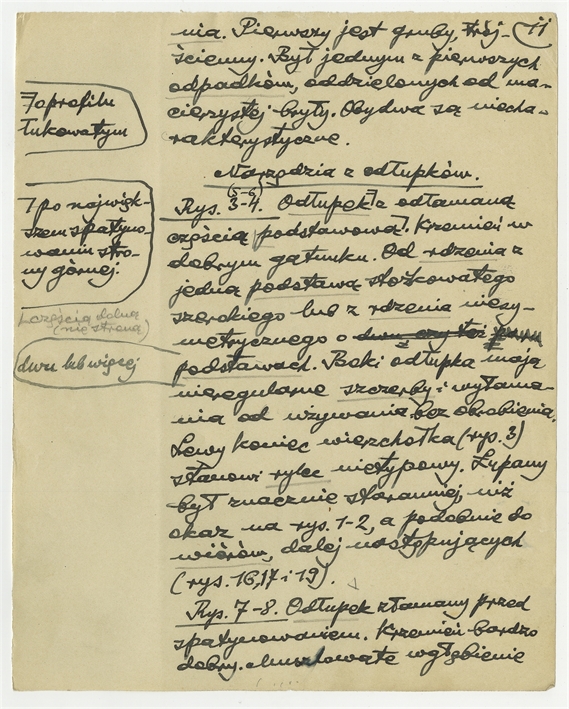 11
nia. Pierwszy jest gruby, trój-
ścienny. Był jednym z pierwszych
odpadków, oddzielonych od ma-
cierzystej bryły. Obydwa są niecha-
rakterystyczne.
7 o profilu
łukowatym
Narzędzia z odłupków.
(5-6)
Rys. 3-4. Odłupek 7 z odłamaną
częścią podstawową 7. Krzemień w
dobrym gatunku. Od rdzenia z
jedną podstawą stożkowatego
szerokiego lub z rdzenia niesy-
metrycznego o dwu czy też
podstawach. Boki odłupka mają
nieregularne szczerby i wyłama-
nia od używania bez obrobienia.
Lewy koniec wierzchołka (rys. 3)
stanowi rylec nietypowy. Łupany
był znacznie staranniej, niż
okaz na rys. 1-2, a podobnie do
wiórów, dalej następujących
(rys. 16, 17 i 19).
7 po najwięk-
szem spatyno-
waniu stro-
ny górnej.
częścią dolną
(nie stroną)
dwu lub więcej
Rys. 7-8. Odłupek złamany przed
spatynowaniem. Krzemień bardzo
dobry. Muszlowate wgłębienie